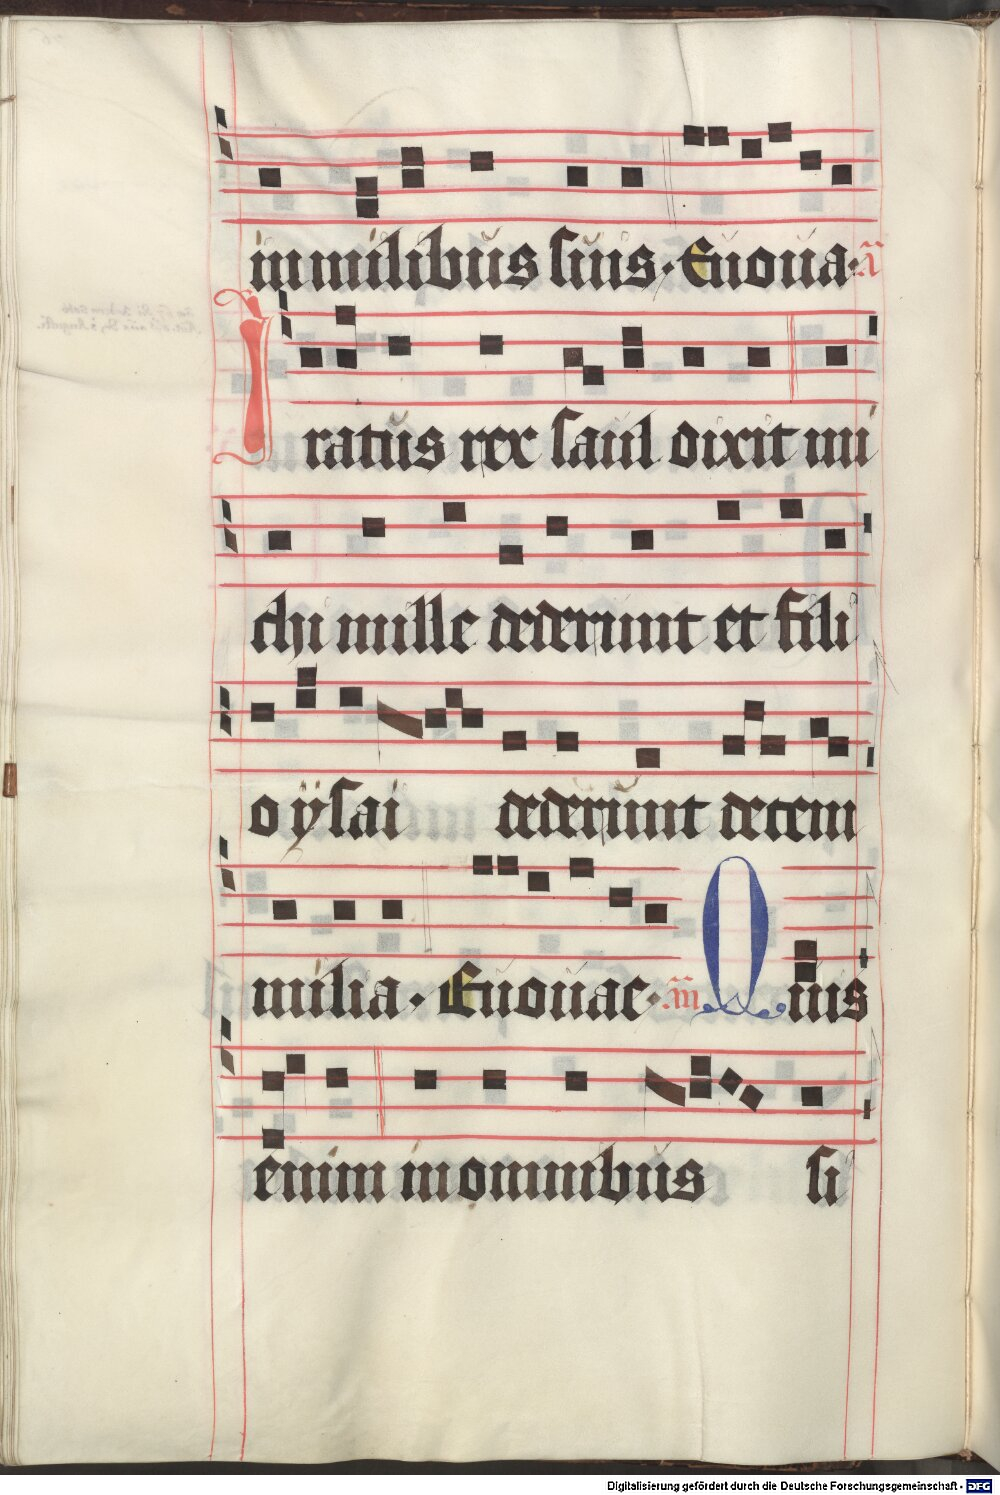 in milibus suis · Euoua · A
Iratus rex saul dixit mi
chi mille dederunt et fili
o ysai dederunt decem
milia · Euouae · Quis
enim in omnibus si
Digitalisierung gefördert durch die Deutsche Forschungsgemeinschaft - DFG